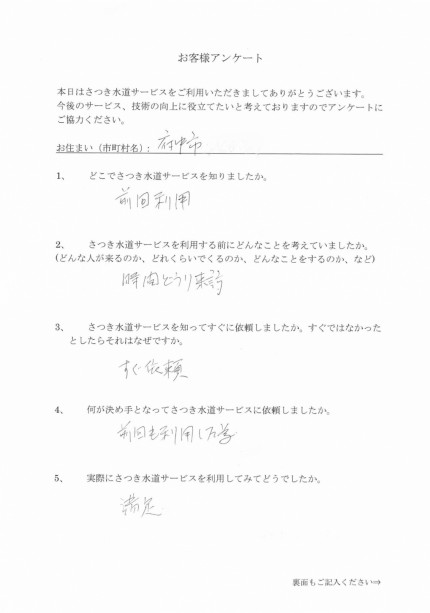 お客様アンケート
本日はさつき水道サービスをご利用いただきましてありがとうございます。
今後のサービス、技術の向上に役立てたいと考えておりますのでアンケートに
ご協力ください。
お住まい（市町村名）： 府中市
1、 どこでさつき水道サービスを知りましたか。
前回利用
2、 さつき水道サービスを利用する前にどんなことを考えていましたか。
(どんな人が来るのか、どれくらいでくるのか、どんなことをするのか、など)
時間どうり来
3、 さつき水道サービスを知ってすぐに依頼しましたか。すぐではなかった
としたらそれはなぜですか。
すぐ依頼
4、 何が決め手となってさつき水道サービスに依頼しましたか。
前回も利用し
5、 実際にさつき水道サービスを利用してみてどうでしたか。
満足
裏面もご記入ください⇒